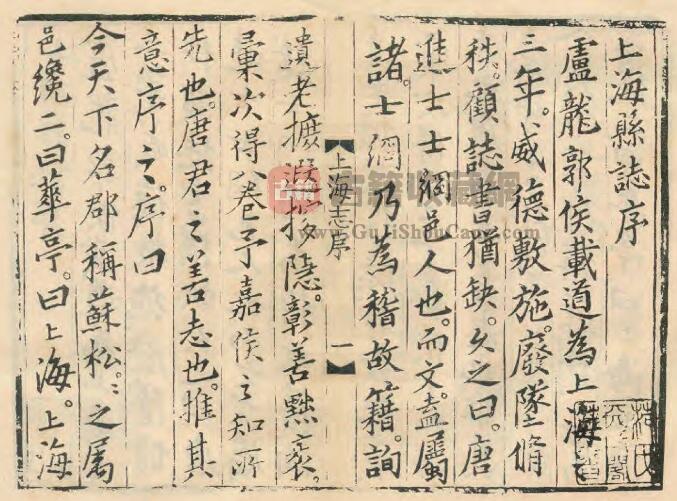 上海縣誌序
盧龍郭侯載道為上海
三年。威德敷施。廢墜脩
秩。顧誌書猶缺。久之曰。唐
進士士綱邑人也。而文。盍屬
諸。士綱乃為稽故籍。詢
上海志序 一
遺老摭隱。彰善黜衺。
彙次得八卷予嘉侯之知所
先也。唐君之善志也。推其
意序之。序曰
今天下名郡稱蘇松。〻之属
邑纔二。曰華亭。曰上海。上海
古籍收藏網
www.GuJiShouCang.com